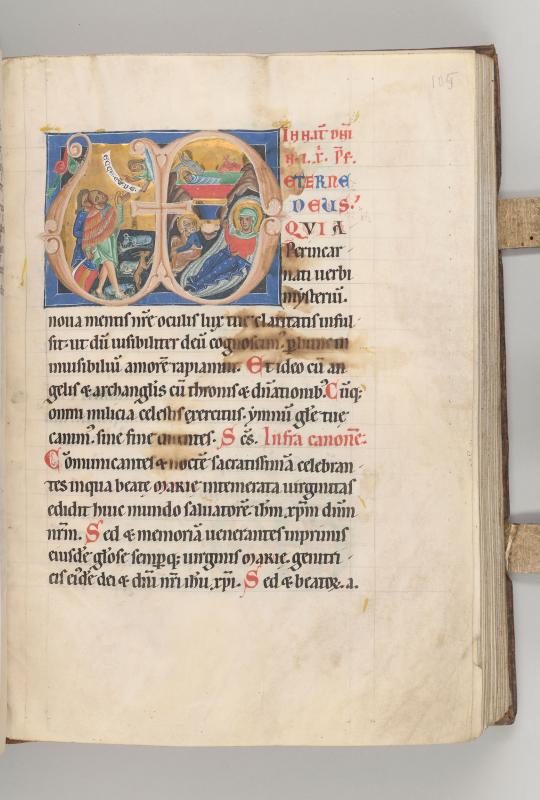 105
In nat̄ dñi
ETERNE
DEUS.
QVI A
Per incar
nati uerbi
mysteriū.
noua mentis nr̄e oculis lux tue claritatis inful
sit. ut dū uisibiliter deū cognoscim᷒. p hunc in
inuisibiliū amorē rapiamur. Et ideo cū an
gelis & archangl̄is cū thronis & dn̄ationib᷒. Cūq;
omni milicia celestis exercitus. ymnū gl̄e tue
canim᷒. sine fine dicentes. S c̄s. Infra canonē.
Comunicantes & noctē sacratissimā celebran
tes in qua beate MARIE intemerata uirginitas
edidit huic mundo saluatorē. ih̄m xp̄m dn̄m
nr̄m. Sed & memoriā uenerantes inprimis
eiusdē gl̄ose semp q; uirginis MARIE. genitri
cis eiusdē dei & dn̄i nr̄i ih̄u xp̄i. Sed & beator᷒. a.